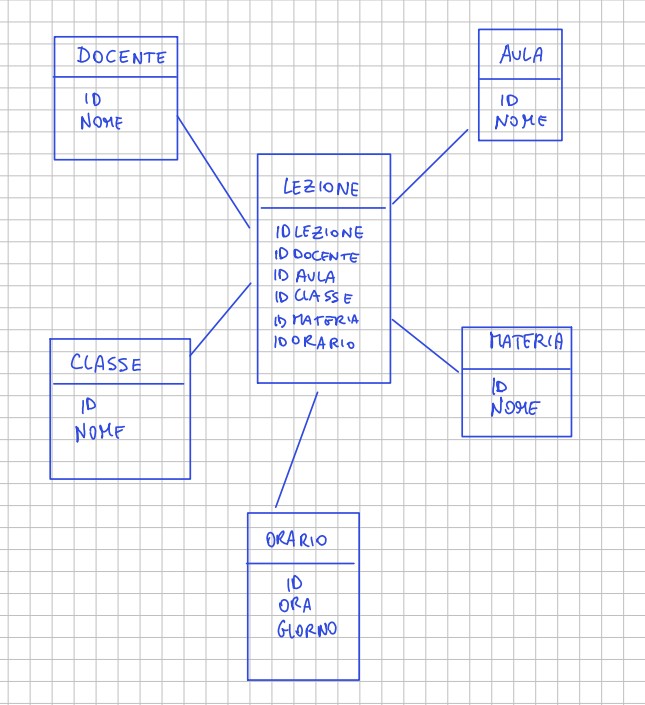 DOCENTE
ID
NOME
AULA
ID
NOME
LEZIONE
ID LEZIONE
ID DOCENTE
ID AULA
ID CLASSE
ID MATERIA
ID ORARIO
CLASSE
ID
NOME
MATERIA
ID
NOME
ORARIO
ID
ORA
GIORNO